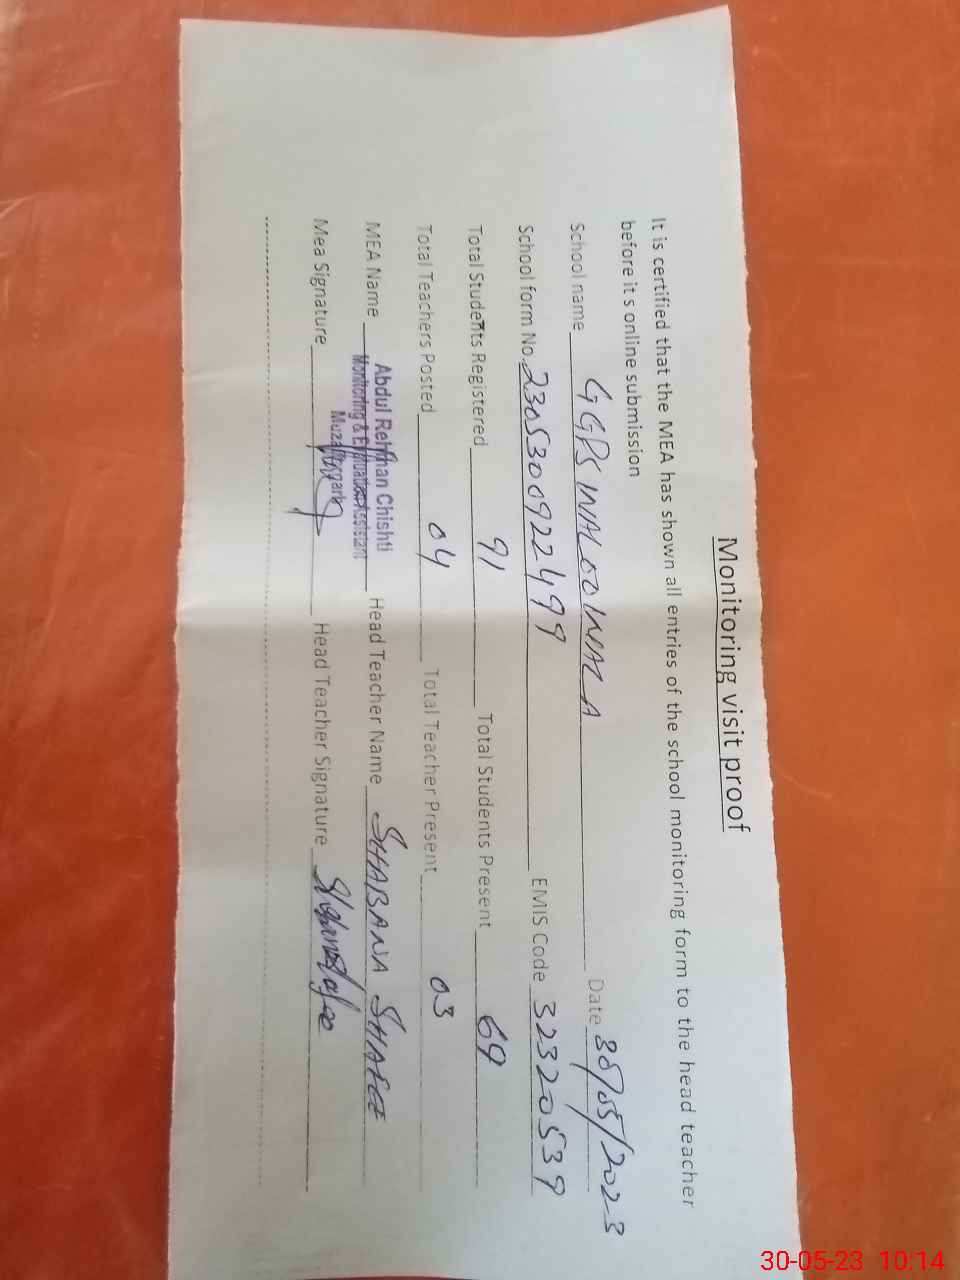 Monitoring visit proof
It is certified that the MEA has shown all entries of the school monitoring form to the head teacher
before it s online submission
School name GGPS WALOO WALA Date 30/05/2023
School form No. 2305300922499 EMIS Code 32320539
Total Students Registered 91 Total Students Present 69
Total Teachers Posted 04 Total Teacher Present 03
MEA Name Abdul Rehman Chishti Head Teacher Name SHABANA SHAFEE
Monitoring & Evaluation Assistant
Muzaffargarh
Mea Signature Head Teacher Signature
30-05-23 10:14